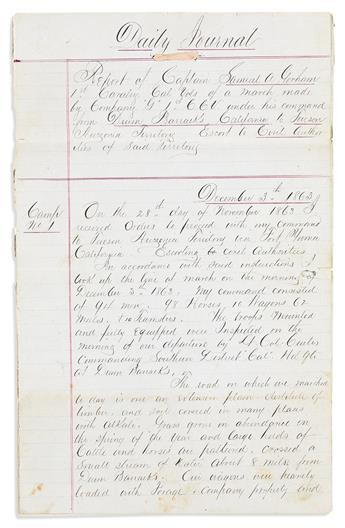 Daily Journal
Report of Captain Samuel A Gorham
1st Cavalry Cal Vols of a march made
by Company "G" 1st C.C.V. under his command
from Drum Barracks, California to Tucson
Arizona Territory Escort to Civil Author
ities of Said Territory
December 3rd 1863
Camp
No 1
On the 28th day of November 1863 I
received Orders to proceed with my Command
to Tucson Arizona Territory via Fort Yuma
California Escorting Civil Authorities
In accordance with said instructions I
took up the line of march on the morning
December 3rd 1863. My command consisted
of 94 men, 98 Horses, 10 Wagons 62
Mules, Teamsters. The troops Mounted
and fully Equipped were Inspected on the
morning of our departure by Lt Col Curtis
Commanding Southern District Cal Hd Qs
at Drum Barracks,
The road on which we marched
to day is one an extensive plain destitute of
timber and soil covered in many places
with Alkali. Grass grows in abundance
in the Spring of the Year and large herds of
Cattle and horses are pastured, crossed a
Small stream of Water about 8 miles from
Drum Barracks. Our wagons were heavily
loaded with Forage Company property and